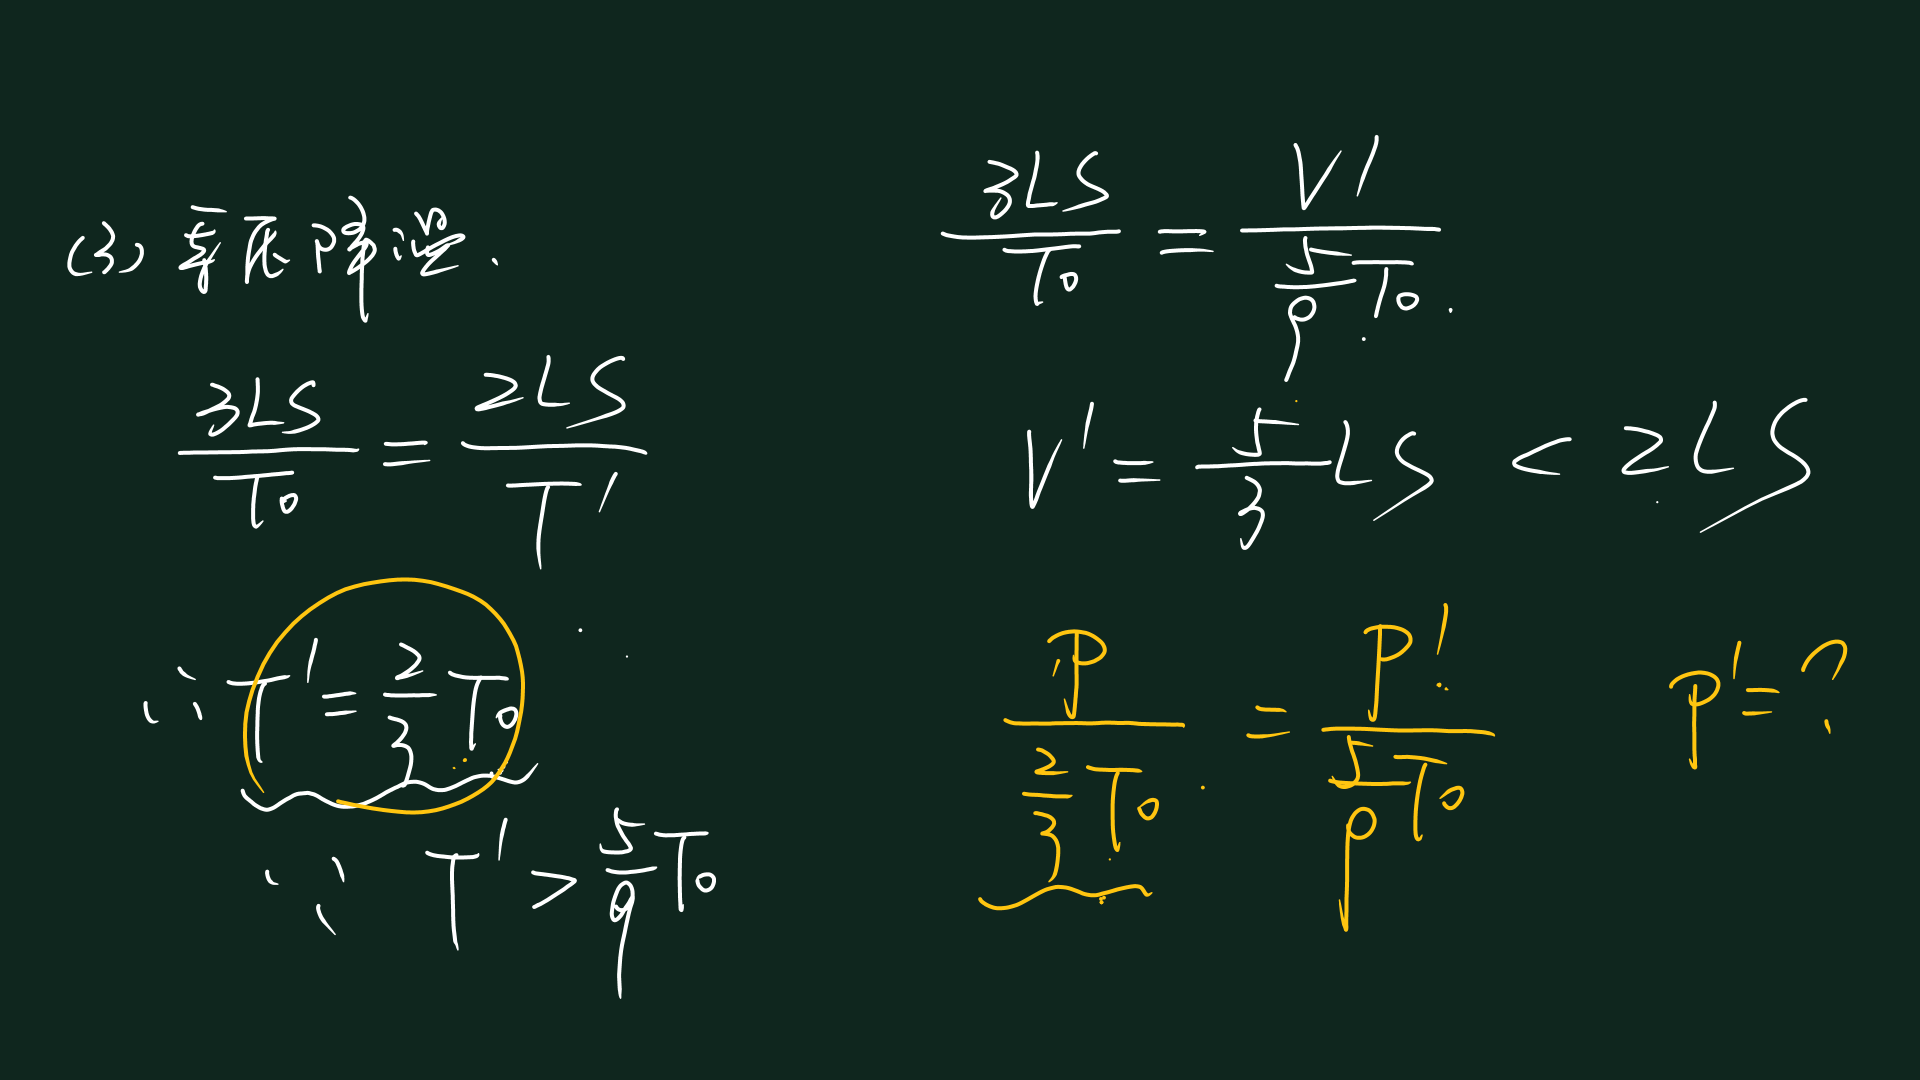 (3) 等压降温.
3LS/T₀ = 2LS/T'
∵ T' = 2/3 T₀
∵ T' > 5/9 T₀
3LS/T₀ = V'/(5/9 T₀).
V' = 5/3 LS < 2LS
P/(2/3 T₀) = P'/(5/9 T₀) P' = ?